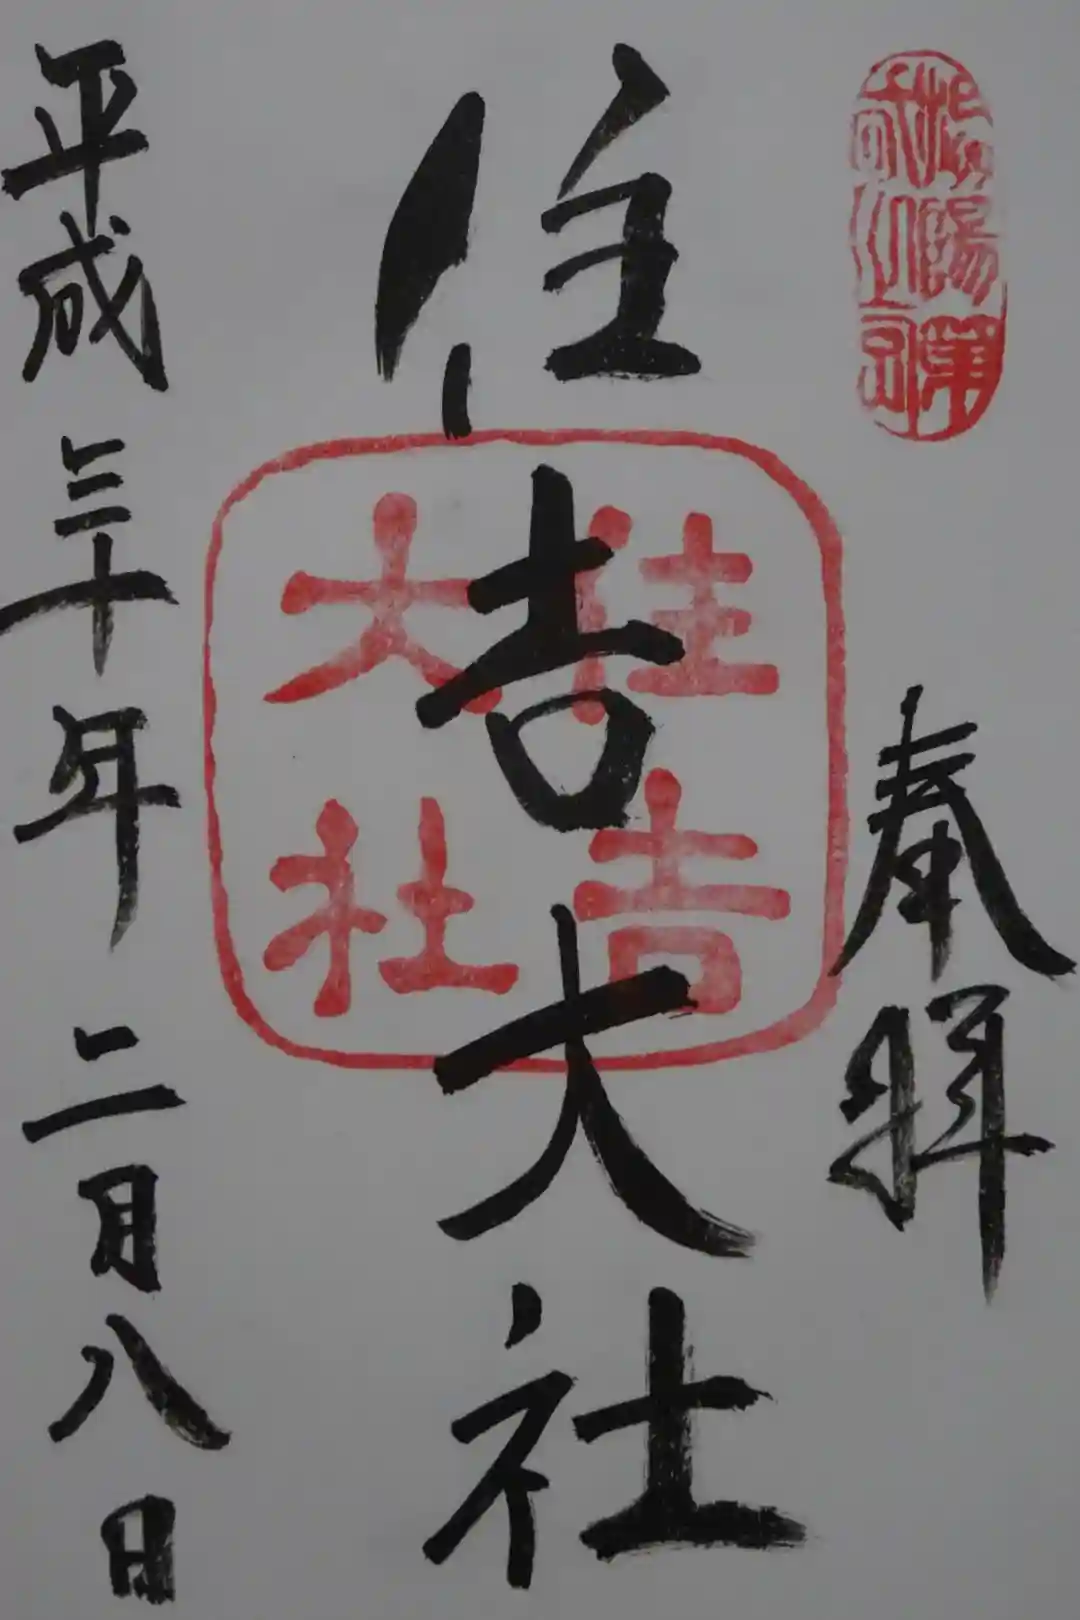 奉拝
住吉大社
住吉大社
平成三十年二月八日